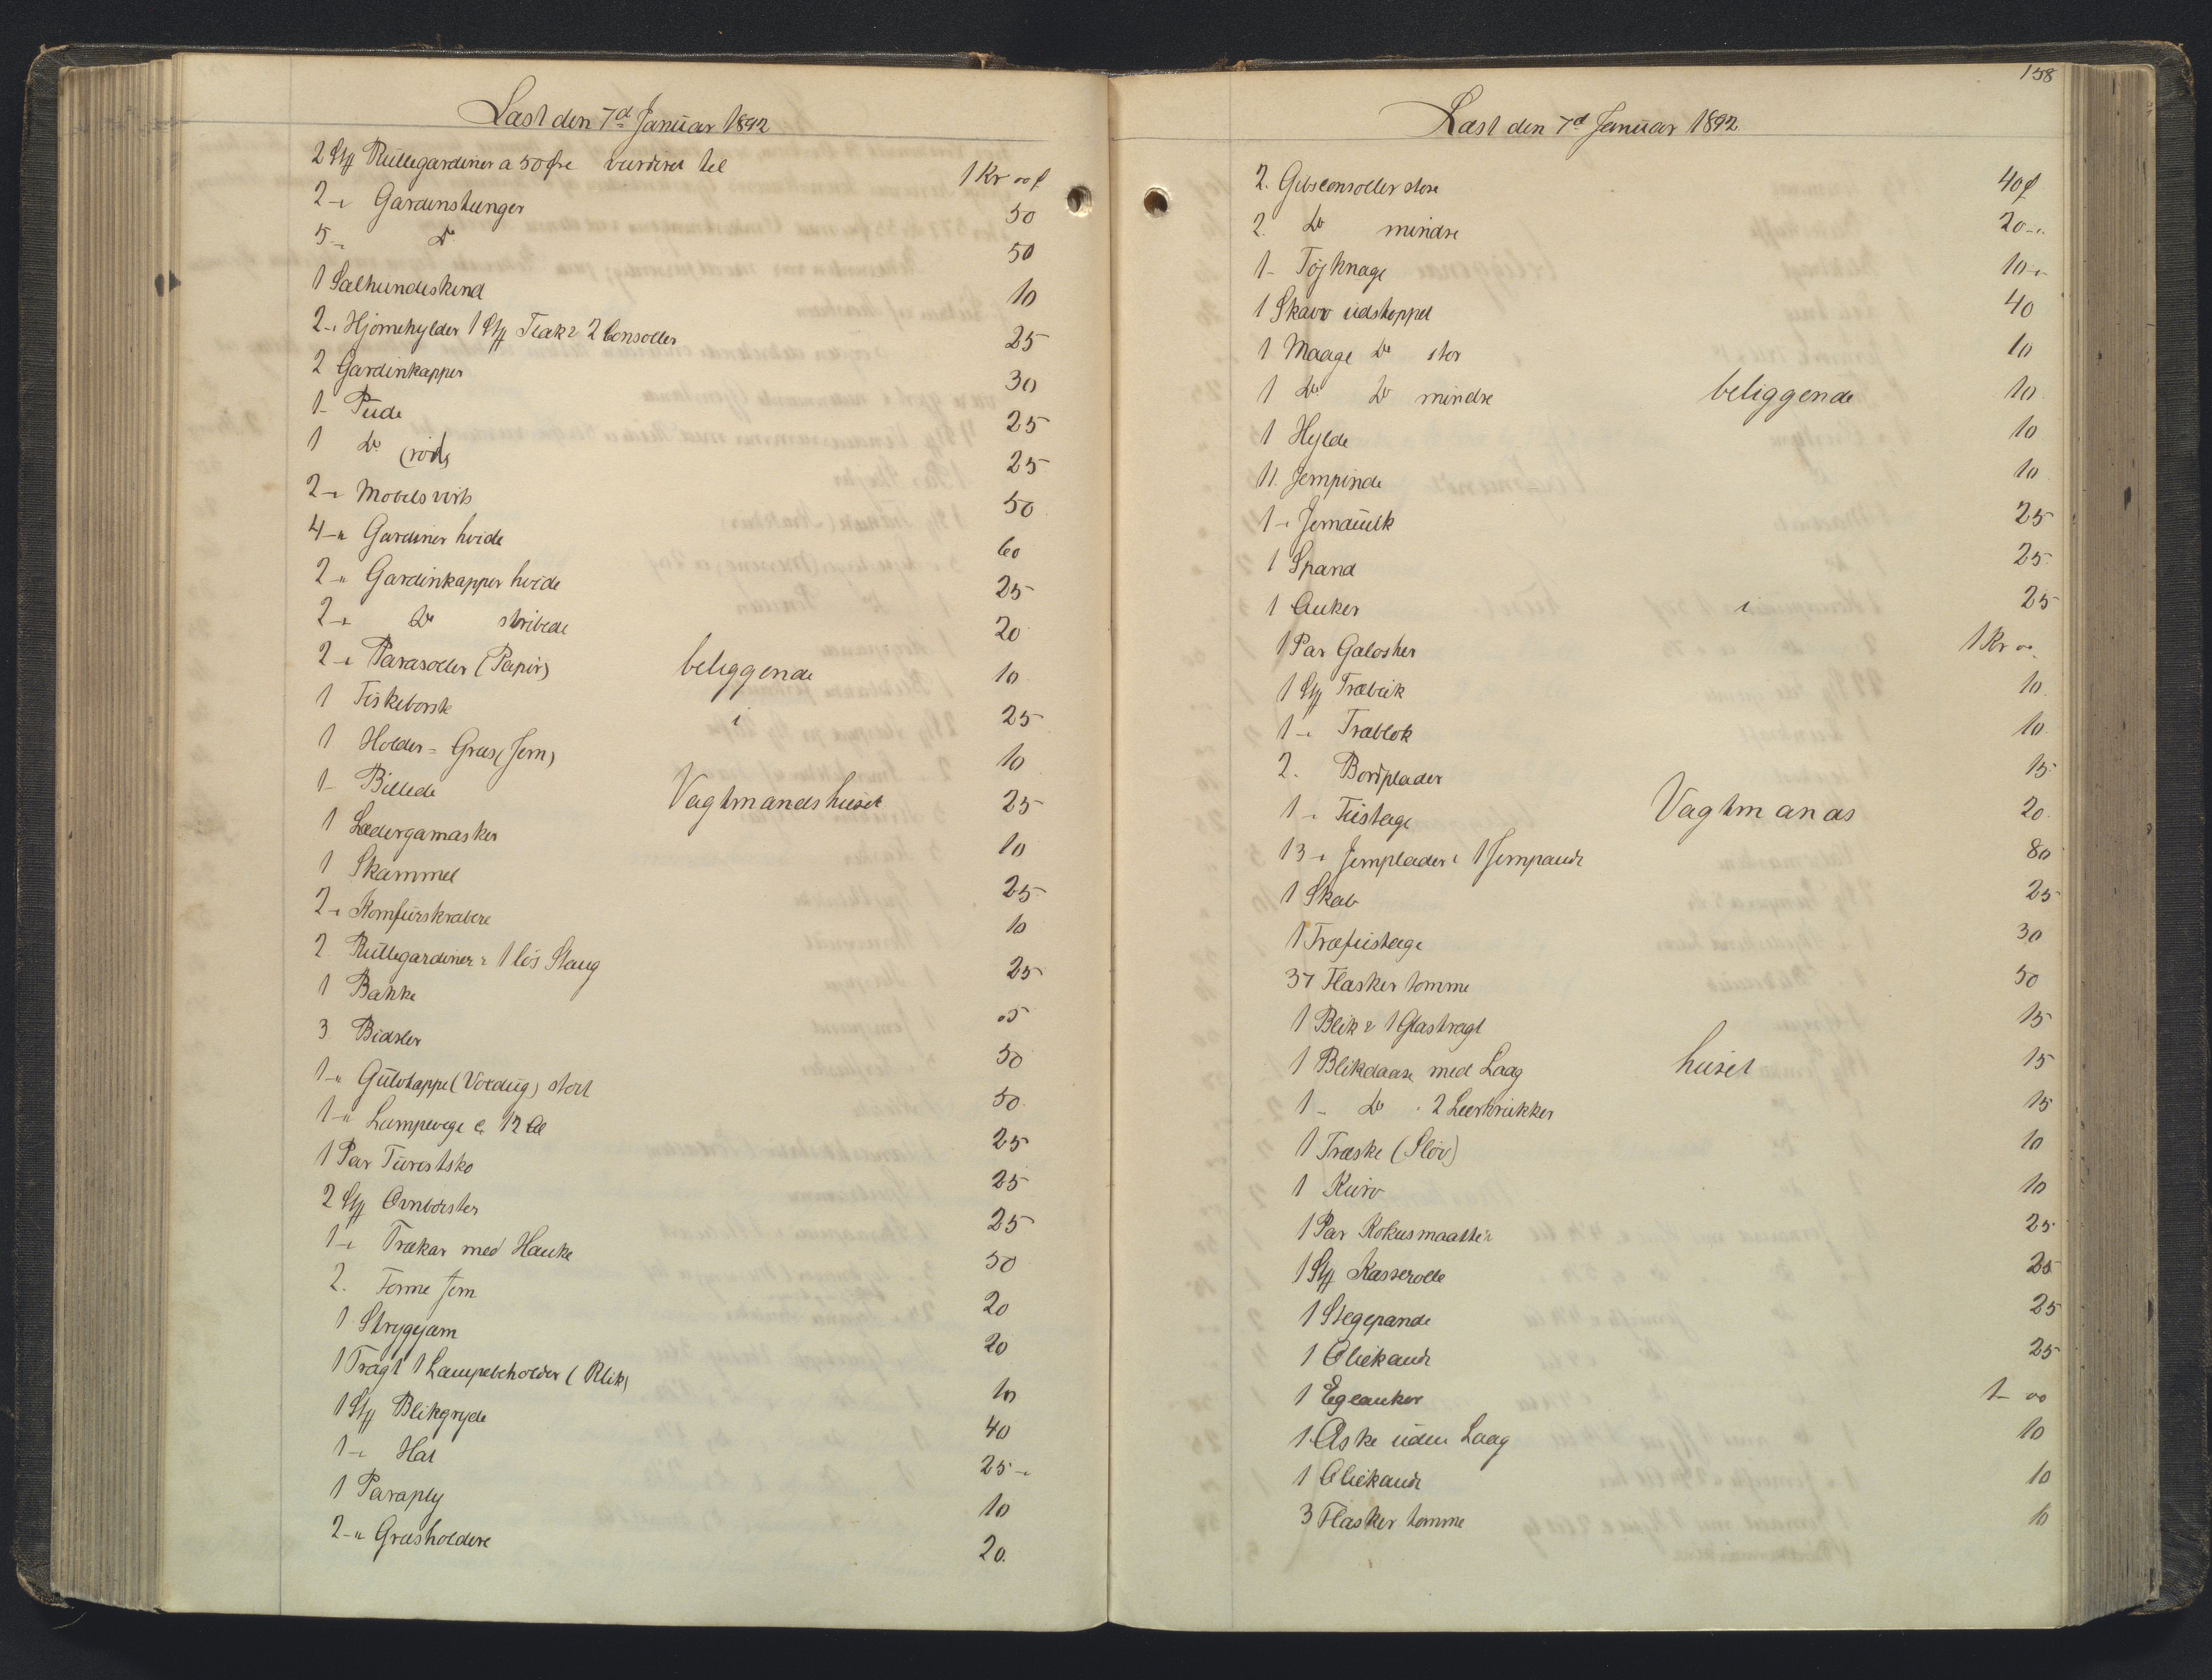 Læst den 7d Januar 1892
2 Stk Rullegardiner a 50 Øre vurderet til 1 Kr 00 ø
2 -" Gardinstænger 50
5 -" Do 50
1 Sælhundeskind 10
2 -" Hjørnehylder 1 Stk 2 Consoller 25
2 Gardinkapper 30
1 - Pude 25
1 Do (rød) 25
2 -" Møbelsvirts 50
4 -" Gardiner hvide 60
2 -" Gardinkapper hvide 25
2 -" Do stribede 20
2 -" Parasoller (Papir) beliggende 10
1 Fiskebørste i 25
1 Holder = Græs (Jern) 10
1 - Billede Vagtmandshuset 25
1 Lædergamasker 10
1 Skammel 25
2 -" Komfurskrabere 10
2 Rullegardiner & 1 løs Stang 25
1 Bakke 05
3 Bidsler 50
1 -" Gulvtæppe (Voxdug) stort 50
1 -" Lampevæge c. 12 Al 25
1 Par Turistsko 25
2 Stk Ovnbørster 25
1 -" Trækar med Hanke 50
2. Forme Jern 20
1 Strygejærn 20
1 Tragt 1 Lampebeholder (Blik) 10
1 Stk Blikgryde 40
1 -" Hat 25 -"
1 Paraply 10
2 -" Græsholdere 20.
158
Læst den 7d Januar 1892
2. Gibsconsoller store 40 ø
2. Do mindre 20 -"
1 - Tøjknage 10 -"
1 Skarv udstoppet 40
1 Maage Do stor 10
1 Do Do mindre beliggende 10
1 Hylde 10
11. Jernpinde 10
1 -" 25
1 Spand 25
1 Anker i 25
1 Par Galosher 1 Kr 00
1 Stk 10
1 -" Træblok 10
2. Bordplader 15
1 -" Fustage Vagtmands 20.
13 -" Jernplader & 1 Jernpande 80
1 Skab 25
1 Træfustage 30
37 Flasker tomme 50
1 Blik & 1 Glastragt 15
1 Blikdaase med Laag huset 15
1 - Do . 2 Leerkrukker 15
1 Træske (Sløv) 10
1 Kurv 10
1 Par Kokusmaatter 25
1 Stk Kasserolle 25
1 Stegepande 25
1 Oliekande 25
1 Egeanker 1 - 00
1 Æske uden Laag 10
1 Oliekande 10
3 Flasker tomme 10